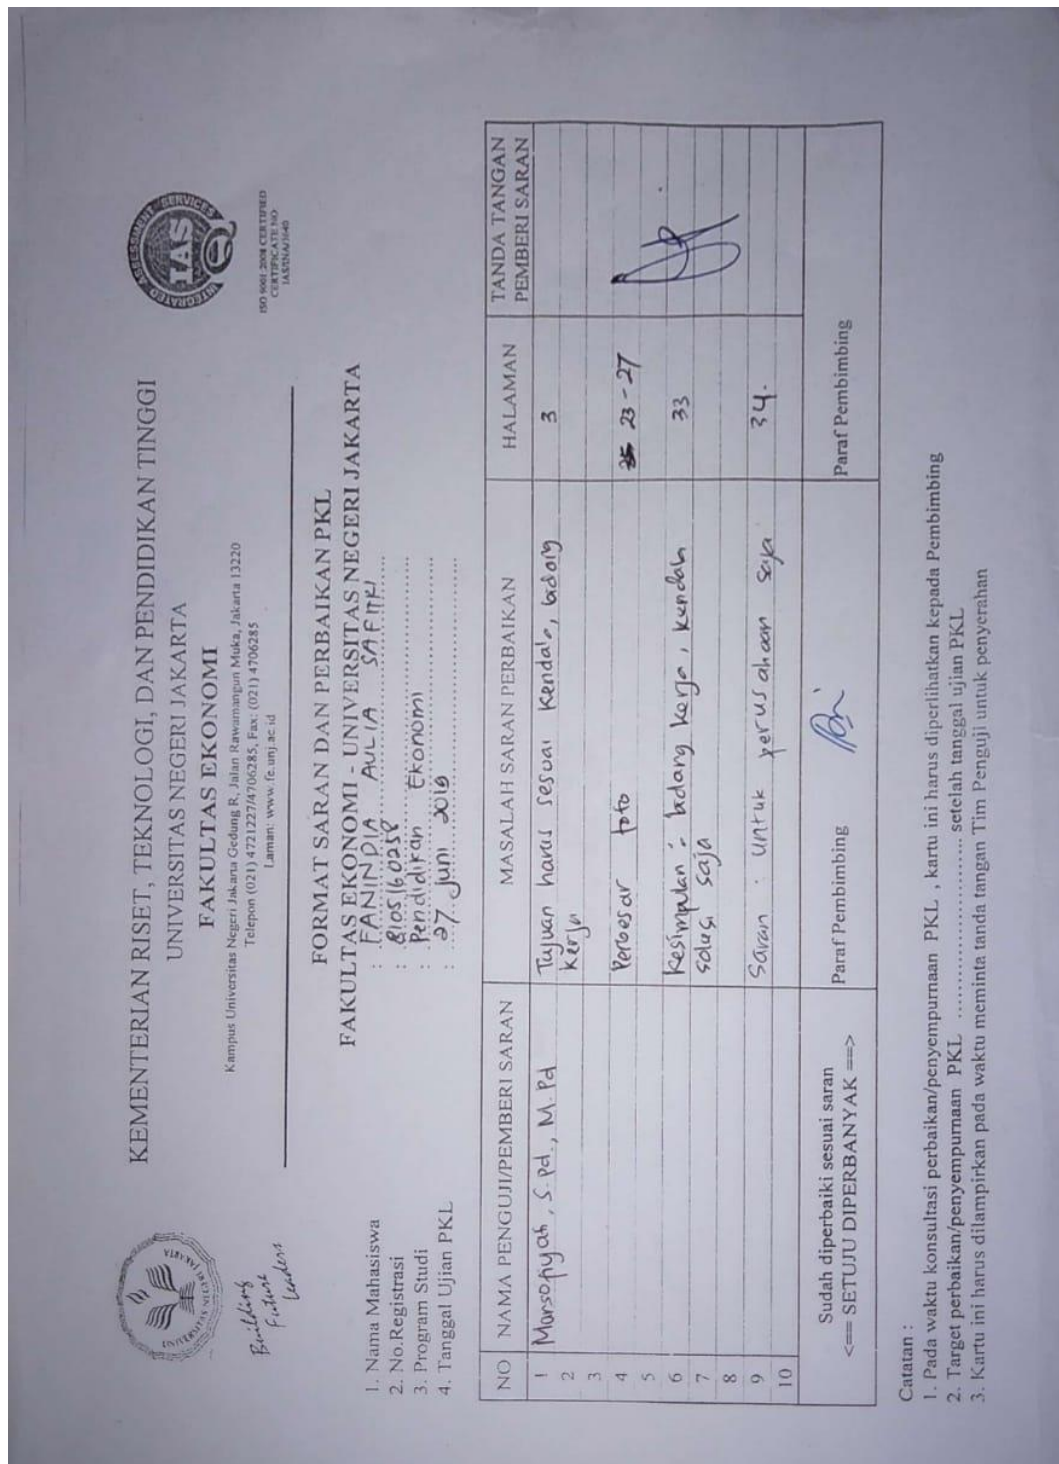 KEMENTERIAN RISET, TEKNOLOGI, DAN PENDIDIKAN TINGGI
UNIVERSITAS NEGERI JAKARTA
FAKULTAS EKONOMI
Kampus Universitas Negeri Jakarta Gedung R, Jalan Rawamangun Muka, Jakarta 13220
Telepon (021) 4721227/4706285, Fax: (021) 4706285
Laman: www.fe.unj.ac.id
UNIVERSITAS NEGERI JAKARTA
Building
Future
Leaders
INTEGRATED ASSESSMENT SERVICES
IAS
ISO 9001:2008 CERTIFIED
CERTIFICATE NO
FORMAT SARAN DAN PERBAIKAN PKL
FAKULTAS EKONOMI - UNIVERSITAS NEGERI JAKARTA
1. Nama Mahasiswa : FANINDIA AULIA SAFITRI
2. No.Registrasi : 8105160258
3. Program Studi : Pendidikan Ekonomi
4. Tanggal Ujian PKL : 27 Juni 2019
NO NAMA PENGUJI/PEMBERI SARAN MASALAH SARAN PERBAIKAN HALAMAN TANDA TANGAN PEMBERI SARAN
1 Marsofiyati, S.Pd., M.Pd Tujuan harus sesuai kendala, bidang 3
2 kerja
3
4 Perbesar foto 23 - 27
5
6 Kesimpulan : bidang kerja, kendala 33
7 solusi saja
8
9 Saran : untuk perusahaan saja 34.
10
Sudah diperbaiki sesuai saran Paraf Pembimbing Paraf Pembimbing
<=== SETUJU DIPERBANYAK ==>
Catatan :
1. Pada waktu konsultasi perbaikan/penyempurnaan PKL , kartu ini harus diperlihatkan kepada Pembimbing
2. Target perbaikan/penyempurnaan PKL ........................ setelah tanggal ujian PKL
3. Kartu ini harus dilampirkan pada waktu meminta tanda tangan Tim Penguji untuk penyerahan